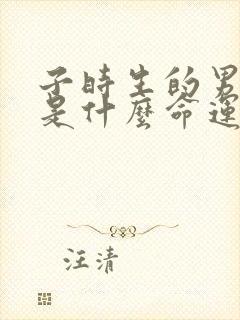 子时生的男
是什麽命運
汪清